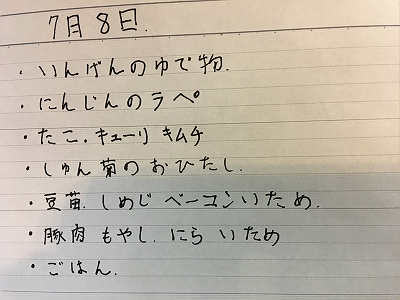 7月8日.
・いんげんのゆで物.
・にんじんのラペ
・たこ.キューリ キムチ
・しゅん菊のおひたし.
・豆苗.しめじ ベーコンいため.
・豚肉 もやし.にら いため
・ごはん.